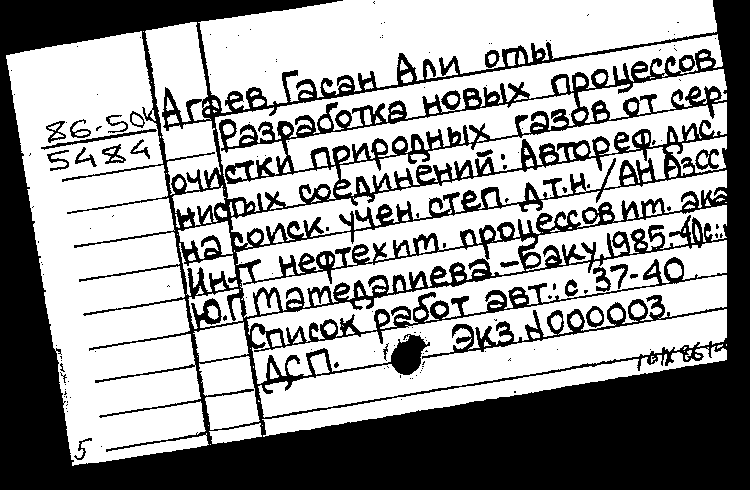 86-50к
5484
Агаев, Гасан Али оглы
Разработка новых процессов
очистки природных газов от сер-
нистых соединений: Автореф. дис.
на соиск. учен. степ. д.т.н. / АН АзССР
Ин-т нефтехим. процессов им. ака
Ю.Г. Мамедалиева. – Баку, 1985.-40с.:
Список работ авт.: с. 37-40
ДСП. Экз. N 000003.
5